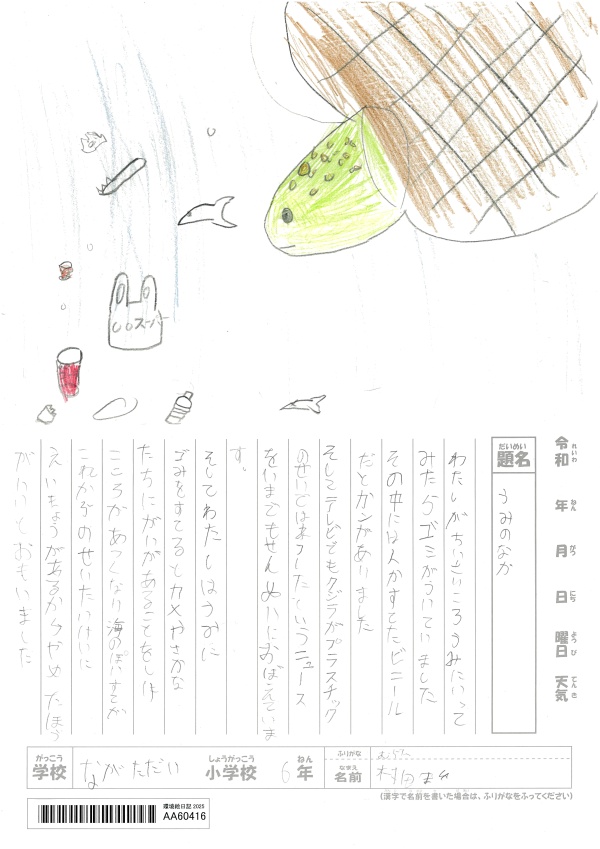 スーパー
令和 れいわ 年 ねん 月 がつ 日 にち 曜日 ようび 天気 てんき
題名 だいめい
うみのなか
わたしがちいさいころうみにいって
みたらゴミがういていました
その中には人がすてたビニール
だとかカンがありました
そしてテレビでもクジラがプラスチック
のせいで
というニュース
をいまでもせんめいにおぼえていま
す。
そしてわたしはうみに
ゴミをすてるとカメやさかな
たちにがいがあることをしり
こころがあつくなり海のぽいすてが
これからのせいたいけいに
えいきょうがあるからやめたほう
がいいとおもいました
学校 がっこう ながただい 小学校 しょうがっこう 6年 ねん
ふりがな
名前 なまえ 村田
(漢字で名前を書いた場合は、ふりがなをふってください)
環境絵日記 2025
AA60416